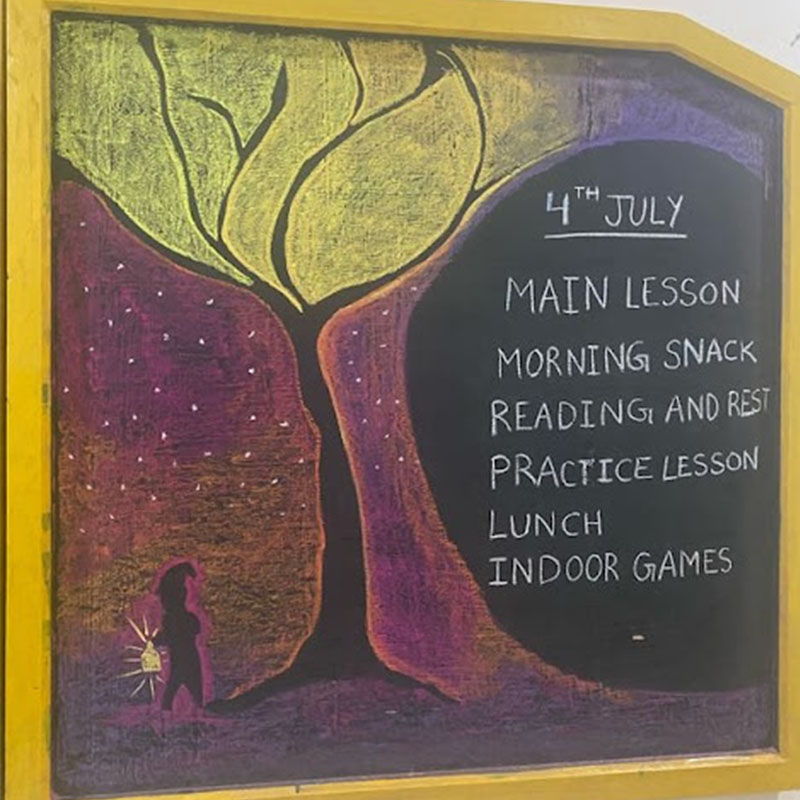 4TH JULY
MAIN LESSON
MORNING SNACK
READING AND REST
PRACTICE LESSON
LUNCH
INDOOR GAMES